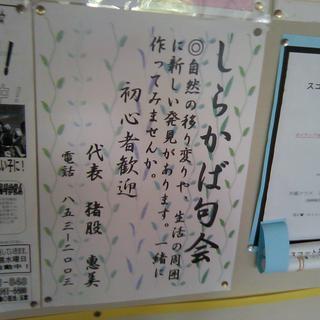 しらかば句会
◎自然の移り変りや、生活の周囲
に新しい発見があります。一緒に
作ってみませんか。
初心者歓迎
代表 猪股 惠美
電話 八五三-二〇〇三